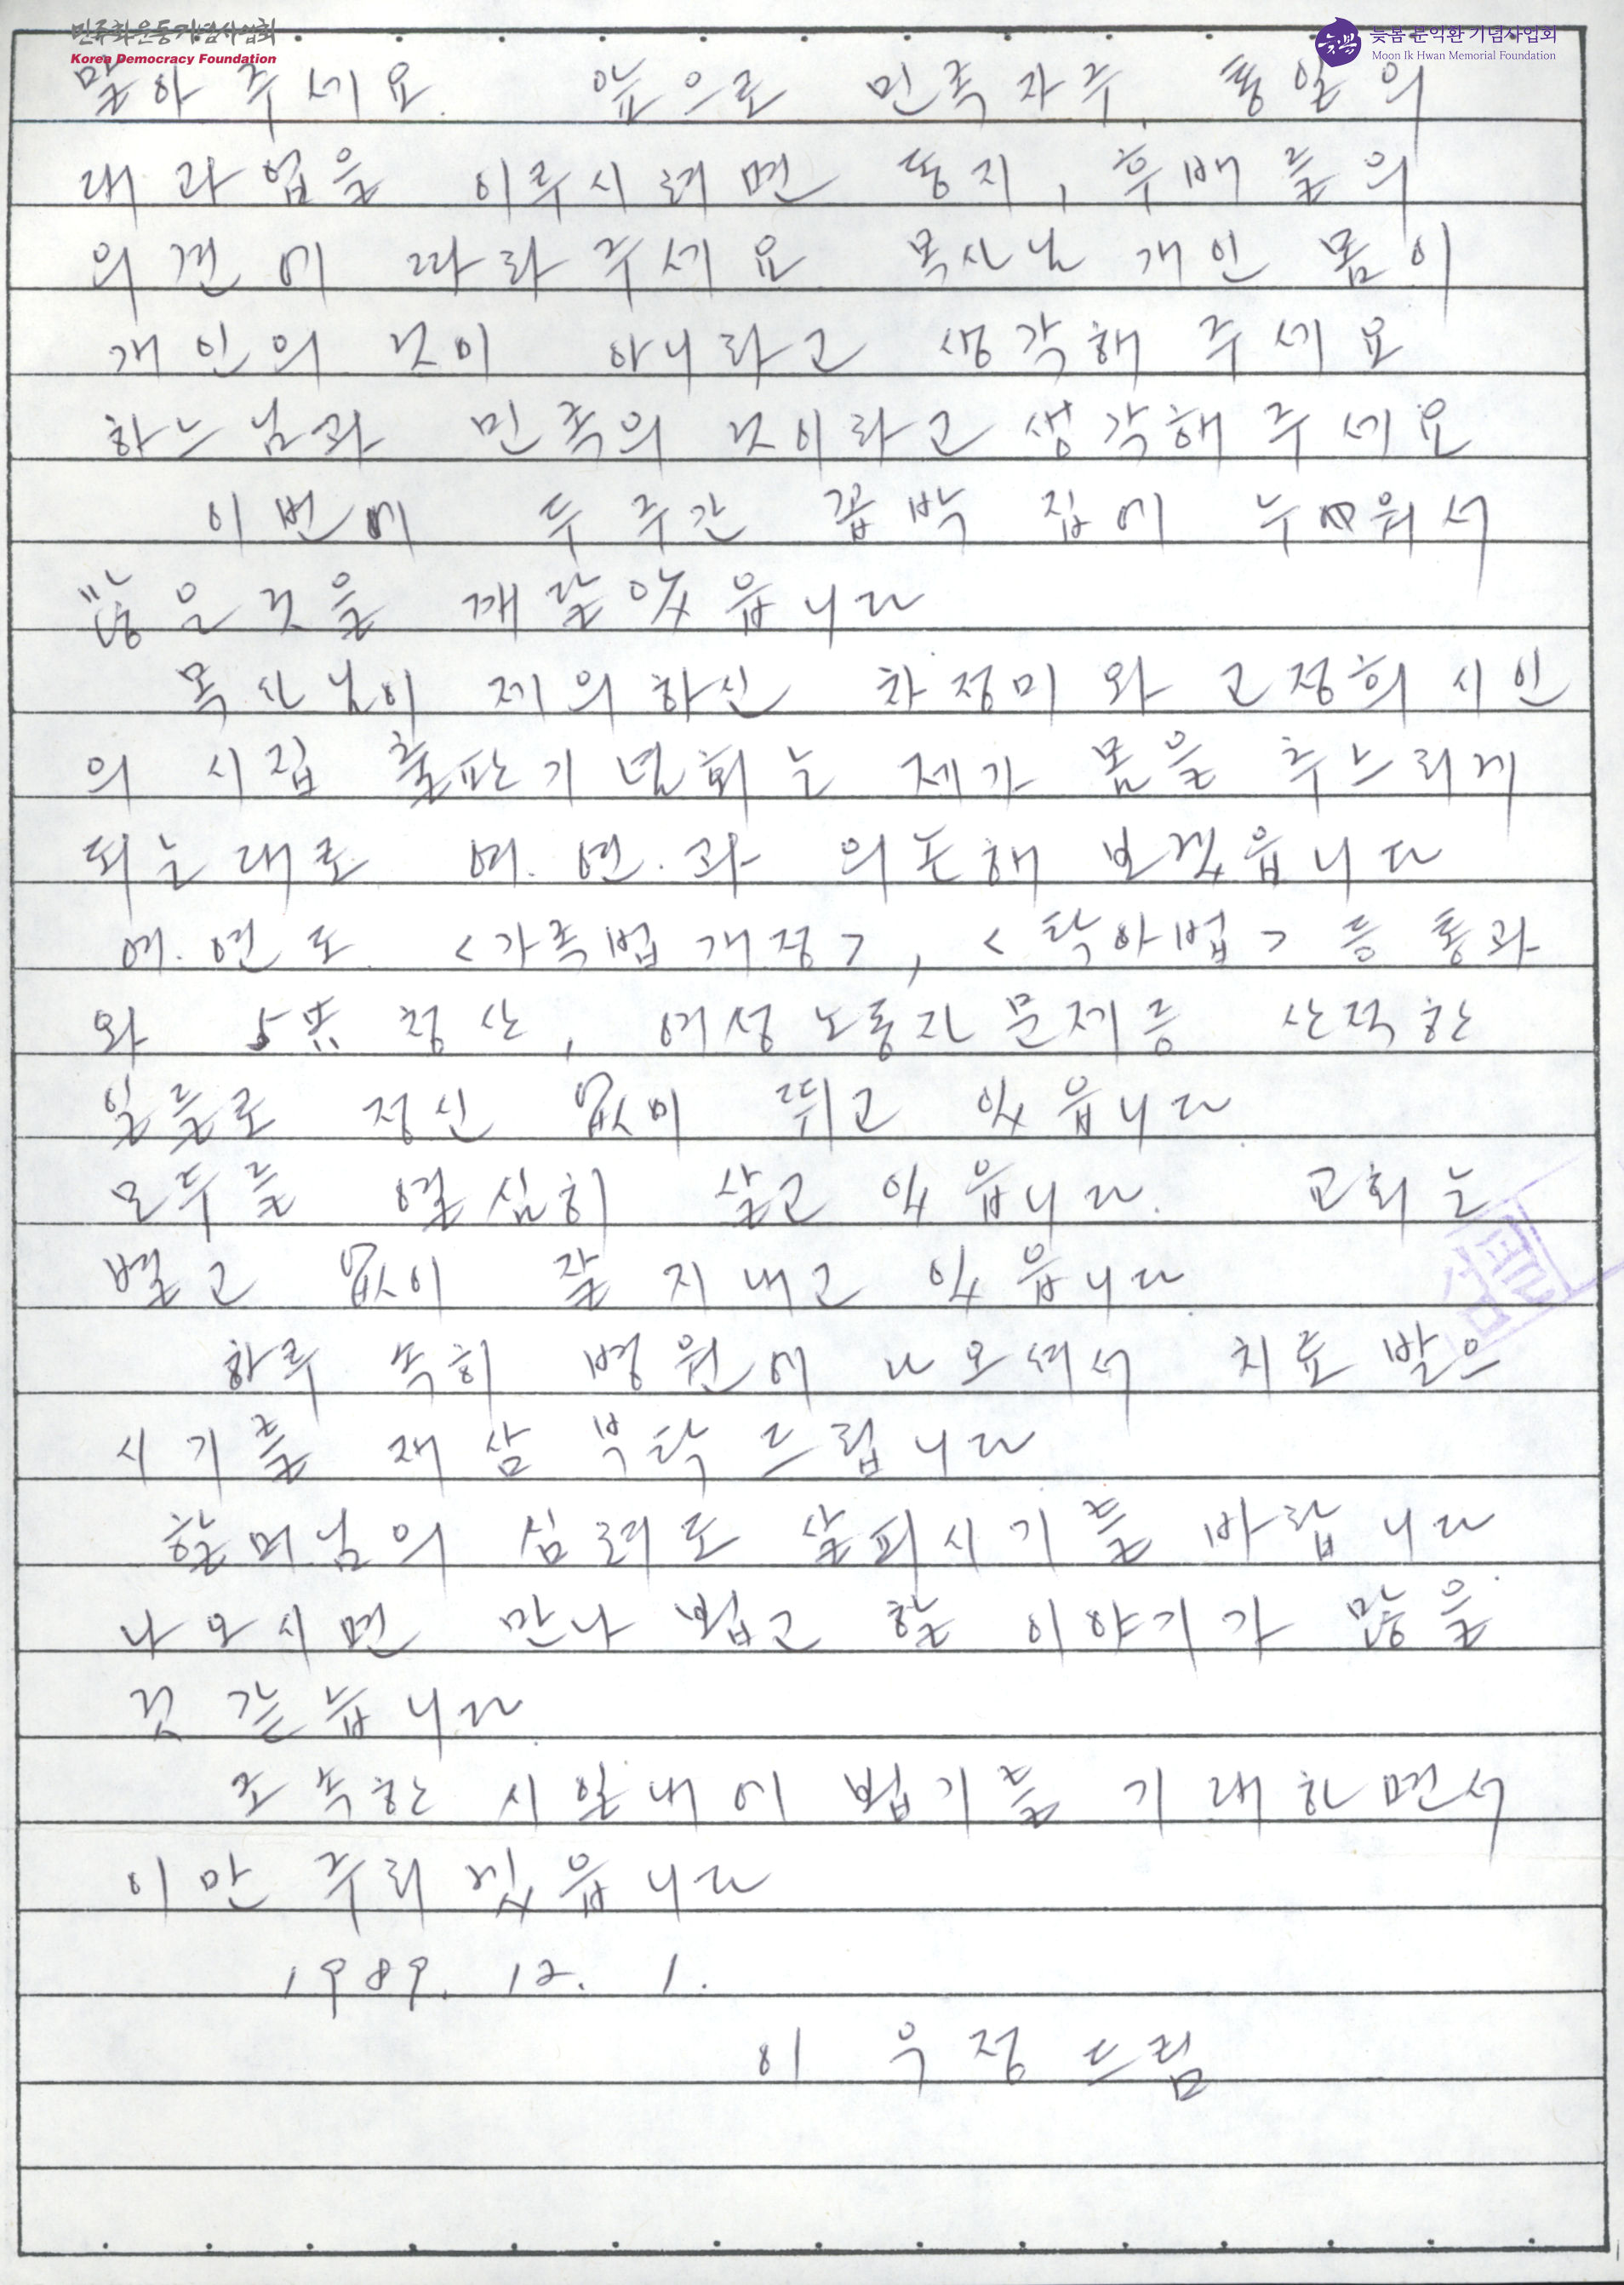 민주화운동기념사업회
Korea Democracy Foundation
늦봄 문익환 기념사업회
Moon Ik Hwan Memorial Foundation
말아 주세요. 앞으로 민족자주, 통일의
대과업을 이루시려면 동지, 후배들의
의견에 따라 주세요 목사님 개인 몸이
개인의 것이 아니라고 생각해 주세요
하느님과 민족의 것이라고 생각해 주세요
이번에 두 주간 꼽박 집에 누워서
많은 것을 깨달았읍니다
목사님이 제의하신 차정미와 고정희 시인
의 시집 출판기념회는 제가 몸을 추느리게
되는대로 여.연.과 의논해 보겠읍니다
여.연도 <가족법개정>, <탁아법> 등 통과
와 5共 청산, 여성노동자문제등 산적한
일들로 정신 없이 뛰고 있읍니다
모두들 열심히 살고 있읍니다. 교회는
별고 없이 잘 지내고 있읍니다
하루 속히 병원에 나오셔서 치료 받으
시기를 재삼 부탁 드립니다
할머님의 심려도 살피시기를 바랍니다
나오시면 만나 뵙고 할 이야기가 많을
것 같습니다
조속한 시일내에 뵙기를 기대하면서
이만 주리겠읍니다
1989. 12. 1.
이우정 드림